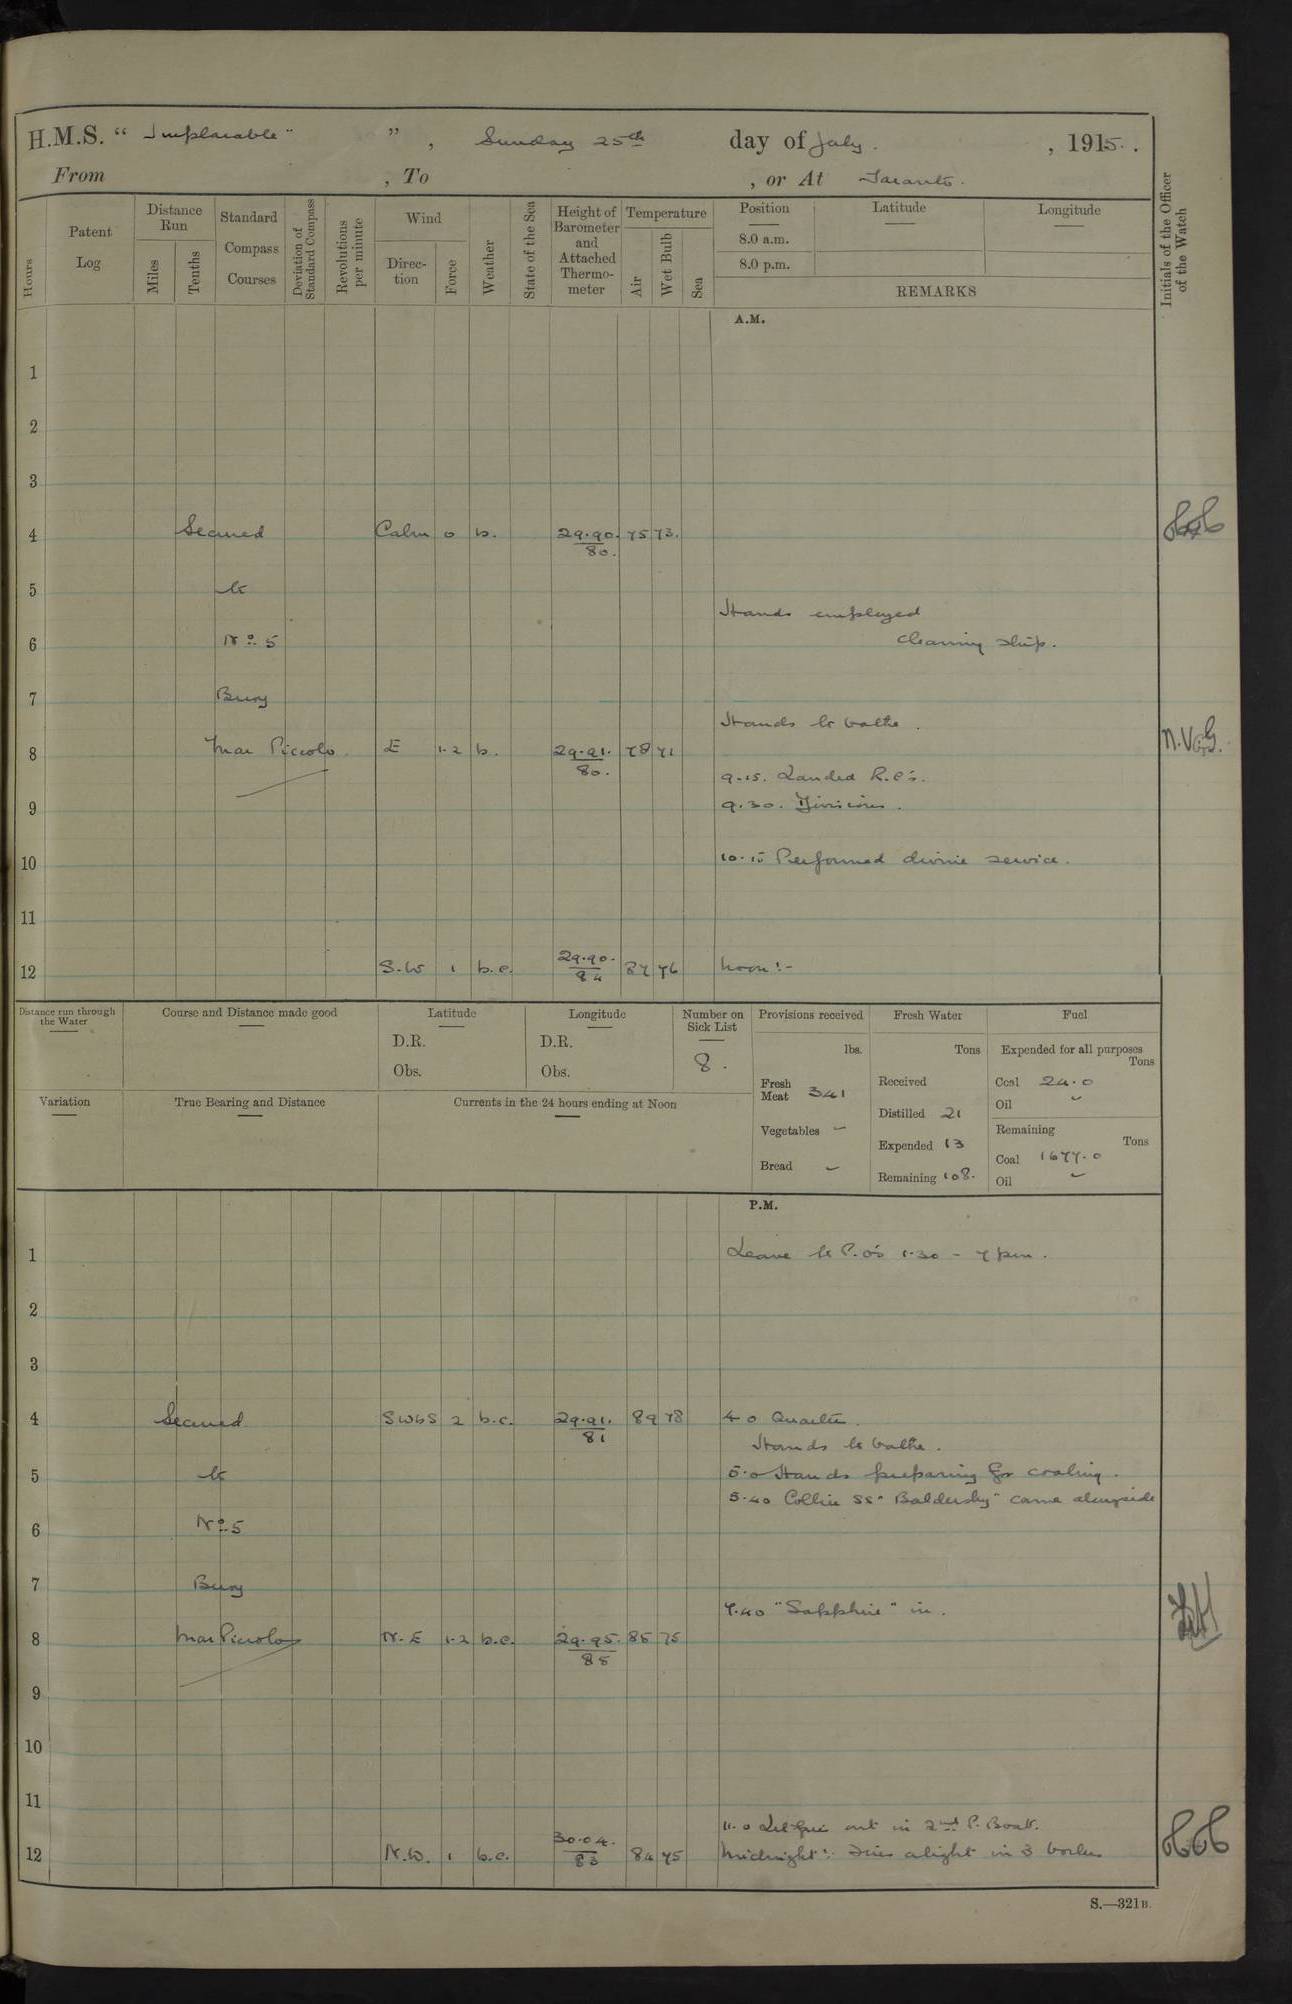 H.M.S. “ Implacable ” , Sunday 25th day of July. , 1915.
From , To , or At Taranto.
Hours
Patent Log
Distance Run
Miles
Tenths
Standard Compass Courses
Deviation of Standard Compass
Revolutions per minute
Wind
Direction
Force
Weather
State of the Sea
Height of Barometer and Attached Thermometer
Temperature
Air
Wet Bulb
Sea
Position Latitude Longitude
8.0 a.m.
8.0 p.m.
REMARKS
Initials of the Officer of the Watch
A.M.
1
2
3
4 Secured Calm 0 b. 29.90. 75 73.
80.
5 to
Hands employed
6 No. 5 cleaning ship.
7 Buoy
Hands to bathe.
8 Mar Piccolo. E 1-2 b. 29.91. 78 71
80.
9.15. Landed R.C's.
9 9.30. Divisions.
10 10.15 Performed divine service.
11
12 S.W 1 b.c. 29.90. 87 76 Noon:-
84
Distance run through the Water
Course and Distance made good
Latitude
D.R.
Obs.
Longitude
D.R.
Obs.
Number on Sick List
8.
Provisions received
lbs.
Fresh Meat 341
Vegetables -
Bread -
Fresh Water
Tons
Received
Distilled 21
Expended 13
Remaining 108.
Fuel
Expended for all purposes
Tons
Coal 24.0
Oil -
Remaining
Tons
Coal 1677.0
Oil -
Variation
True Bearing and Distance
Currents in the 24 hours ending at Noon
P.M.
1 Leave to P.O's 1.30 - 7 pm.
2
3
4 Secured SWbS 2 b.c. 29.91. 89 78 4.0 Quarters.
81
Hands to bathe.
5 to 5.0 Hands preparing for coaling.
5.40 Collier SS "Baldersby" came alongside
6 No. 5
7 Buoy
7.40 "Sapphire" in.
8 Mar Piccolo N.E 1-2 b.c. 29.95. 85 75
85
9
10
11
11.0 Let fires out in 2nd P. Boat.
12 N.W. 1 b.c. 30.04. 84 75 Midnight:- Fires alight in 3 boilers
83
S.—321B.